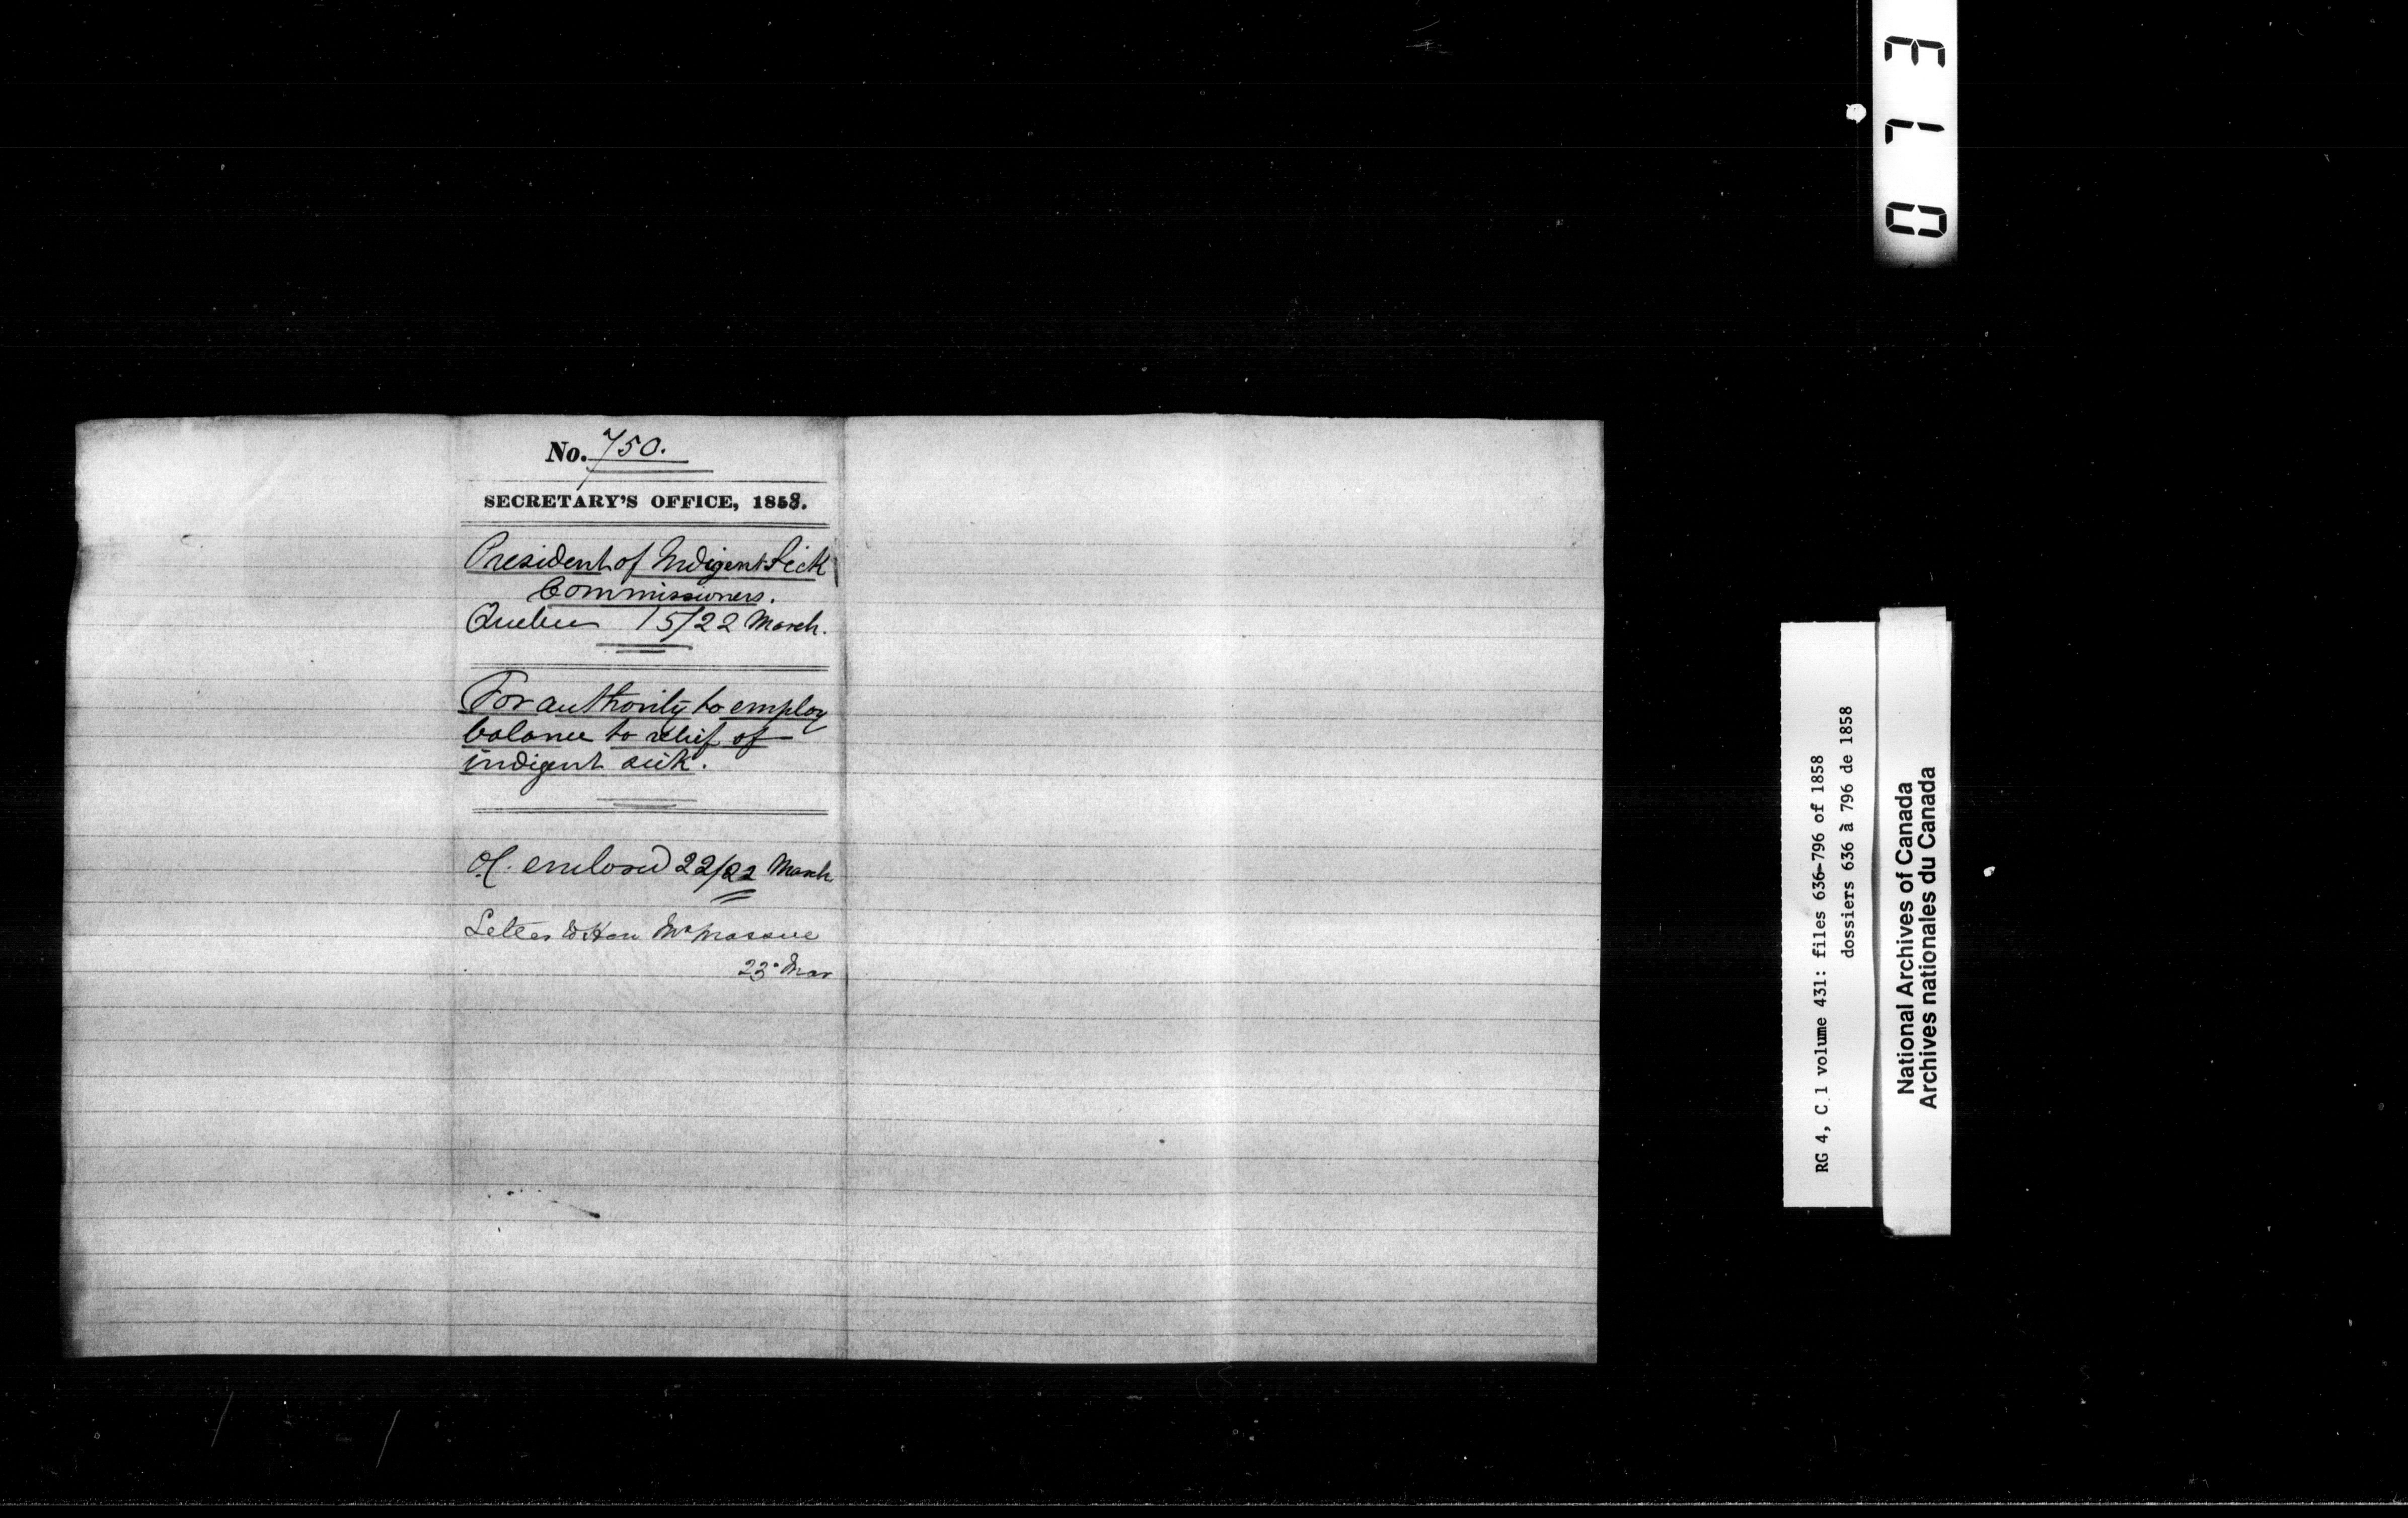 No. 750.
SECRETARY'S OFFICE, 1858.
President of Indigent Sick
Commissioners.
Quebec 15/22 March.
For authority to employ
balance to relief of
indigent sick.
enclosed 22/22 March
Letter to Hon Mr Massue
23 Mar
0173
RG 4, C 1 volume 431: files 636-796 of 1858
dossiers 636 à 796 de 1858
National Archives of Canada
Archives nationales du Canada